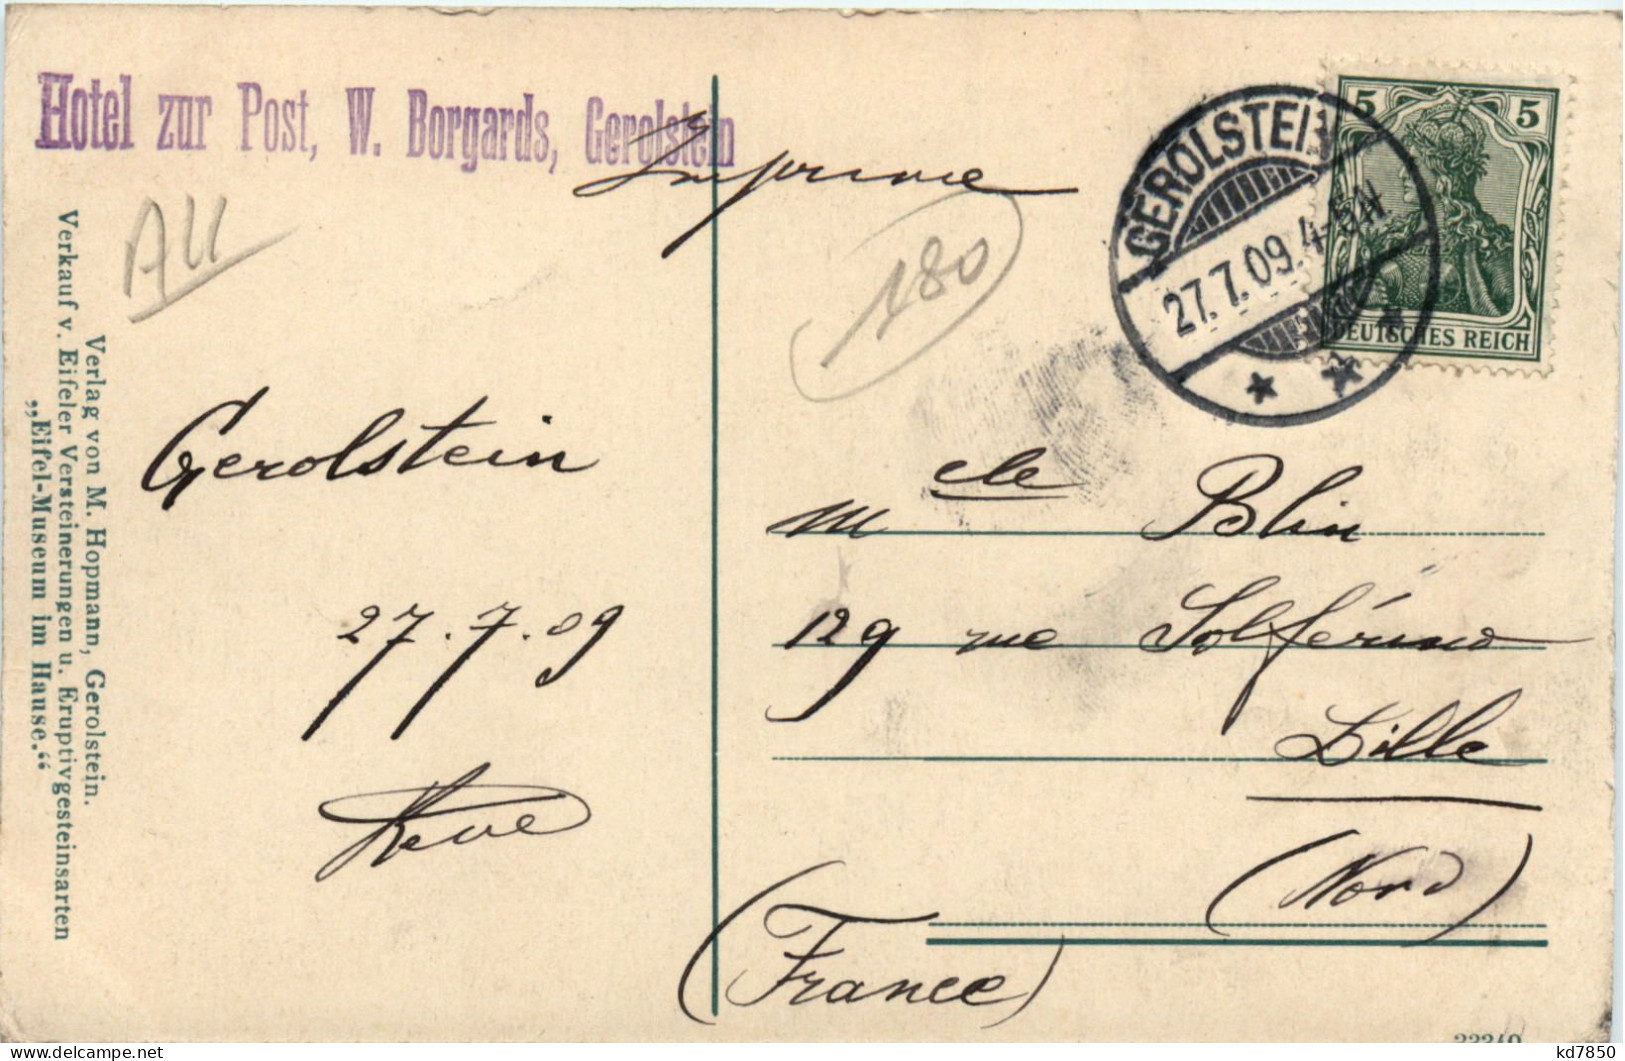 Hotel zur Post, W. Borgards, Gerolstein
Imprimé
GEROLSTEIN
27.7.09. 4-5N
5 5
DEUTSCHES REICH
All
180
Gerolstein
27.7.09
Verlag von M. Hopmann, Gerolstein.
Verkauf v. Eifeler Versteinerungen u. Eruptivgesteinsarten
„Eifel-Museum im Hause.“
Melle Blin
129 rue Solférino
Lille
(Nord)
(France)
kd7850